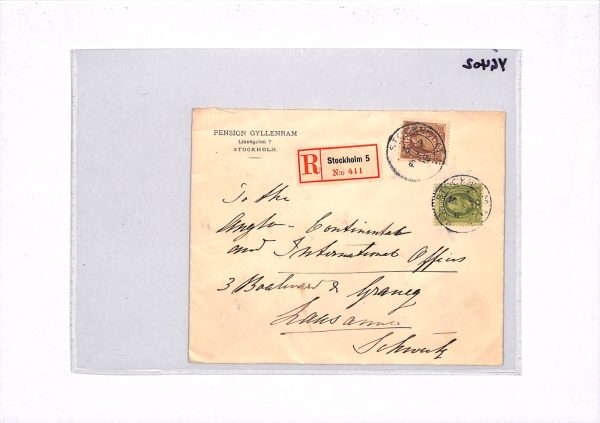 PENSION GYLLENRAM
Linnégatan 7
STOCKHOLM.
R
Stockholm 5
N:o 411
STOCKHOLM
To the
Anglo-Continental
and International Offices
3 Boulevard de Grancy
Lausanne
Schweitz